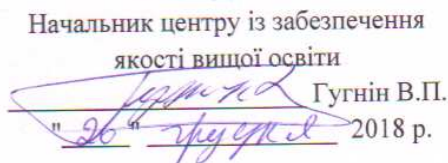 Начальник центру із забезпечення
якості вищої освіти
Гугнін В.П.
"20" грудня 2018 р.